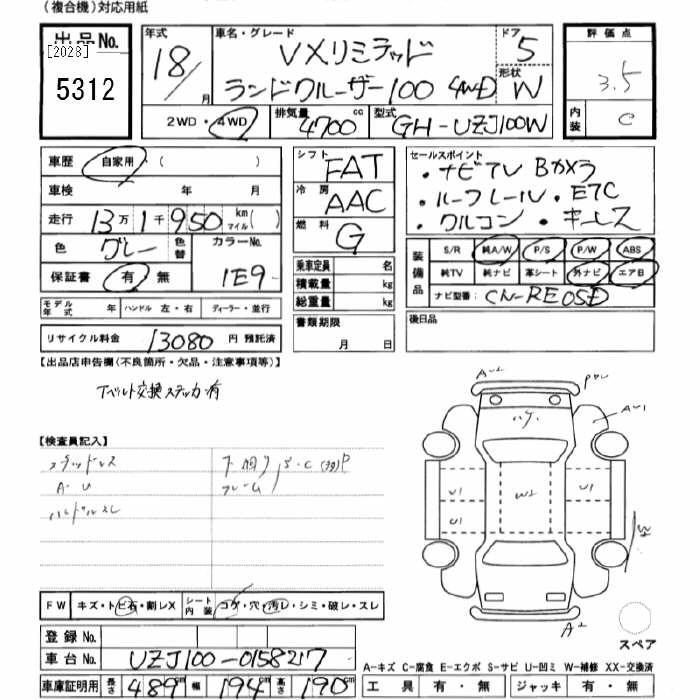 (複合機)対応用紙
出品No. [2028] 5312
年式 18/ 月
車名・グレード VXリミテッド ランドクルーザー100 4WD
ドア 5
形状 W
評価点 3.5
内装 C
2WD・4WD
排気量 4700 cc
型式 GH-UZJ100W
車歴 自家用・( )
車検 年 月
走行 13万1千950 km マイル( )
色 グレー 色替 カラーNo. 1E9
保証書 有・無
シフト FAT
冷房 AAC
燃料 G
乗車定員 名
積載量 kg
総重量 kg
書類期限 月 日
セールスポイント
・ナビTV Bカメラ
・ルーフレール・ETC
・クルコン・キーレス
装備品 S/R 純A/W P/S P/W ABS
純TV 純ナビ 革シート 外ナビ エアB
ナビ型番: CN-RE05D
後日品
モデル年式 年 ハンドル 左・右 ディーラー・並行
リサイクル料金 13080 円 預託済
【出品店申告欄(不良箇所・欠品・注意事項等)】
Tベルト交換ステッカ有
【検査員記入】
スタッドレス
A・U
ハンドルスレ
下廻り
フレーム S・C
FW キズ・トビ石・割レX
シート内装 コゲ・穴・汚レ・シミ・破レ・スレ
A-2
A-1
ハゲ
U1
U1
W2
U1
A2
スペア
登録No.
車台No. UZJ100-0158217
車庫証明用 長さ 489cm 幅 194cm 高さ 190cm
A-キズ C-腐食 E-エクボ S-サビ U-凹ミ W-補修 XX-交換済
工具 有・無 ジャッキ 有・無